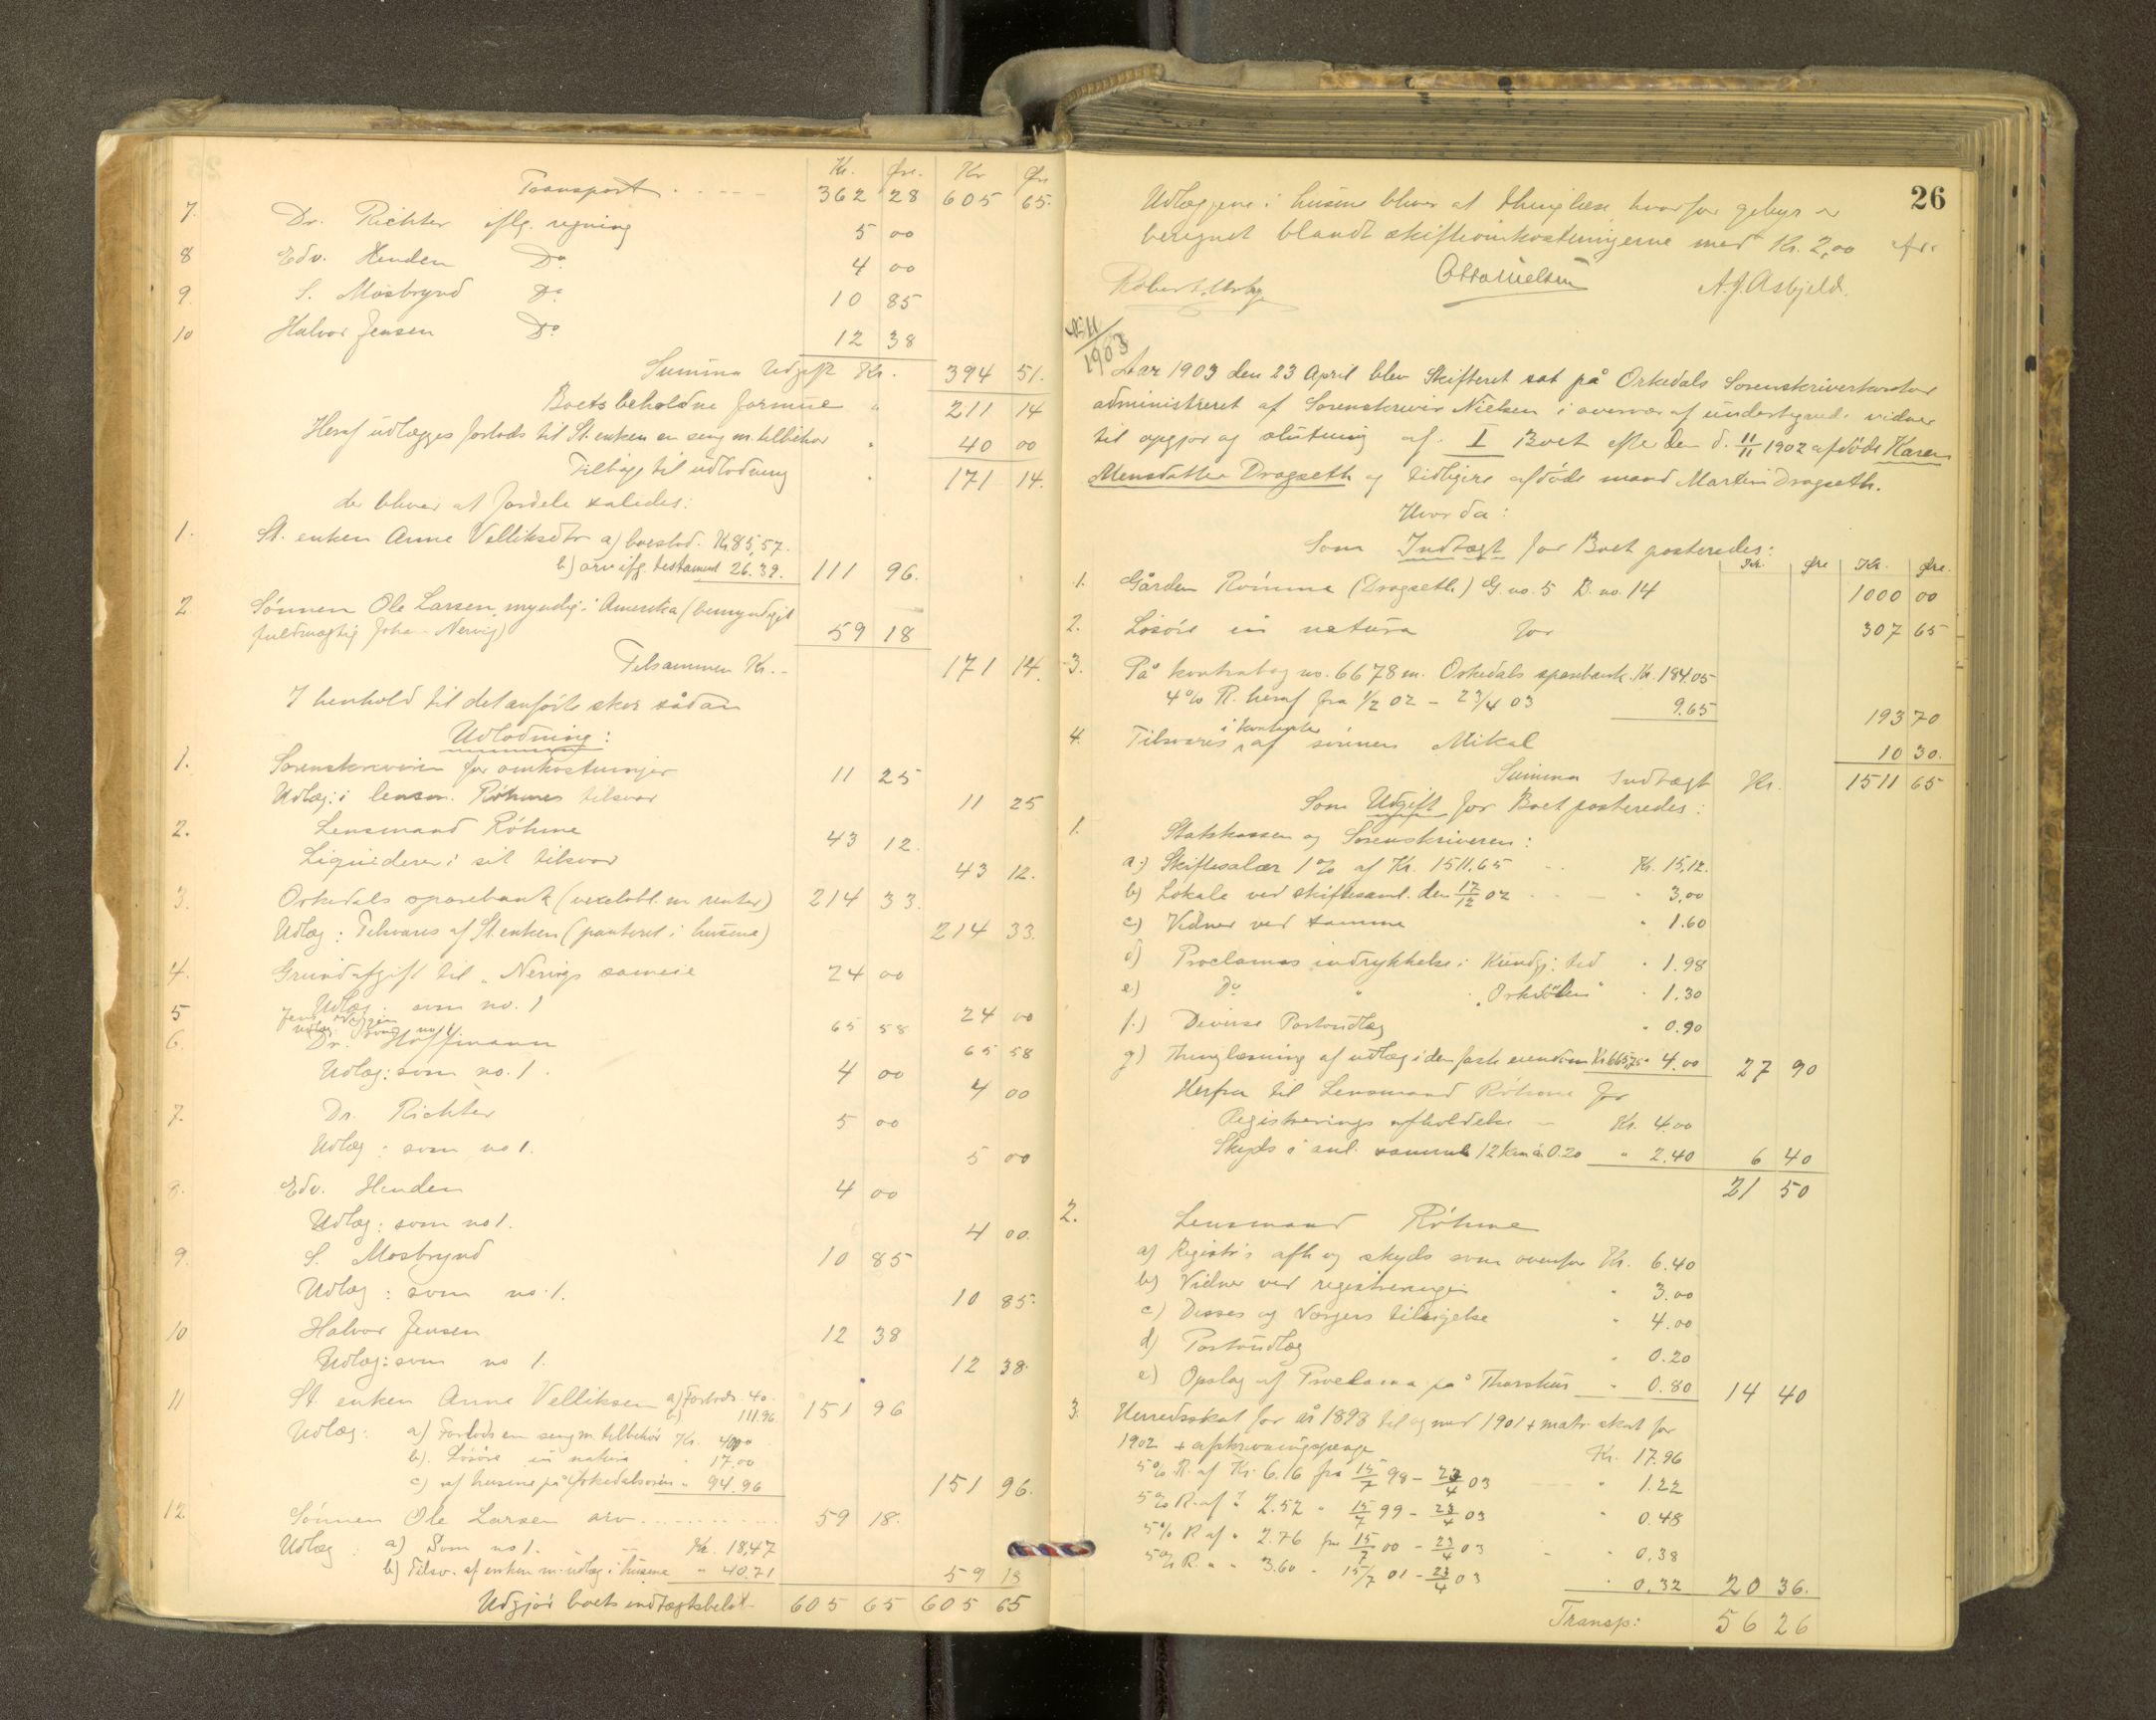 Kr. Øre. Kr Øre
Transport . - - - - 362 28 605 65.
7. Dr. Richter iflg. regning 5 00
8 Edv. Henden Do. 4 00
9. S. Mosbrynd Do 10 85
10 Halvor Jensen Do 12 38
Summa Udgift Kr. 394 51.
Boets beholdne formue " 211 14
Heraf udlægges forlods til St. enken en seng m. tilbehør " 40 00
Tilbage til udlodning " 171 14.
der bliver at fordele saledes:
1. St. enken Anne Velliksdtr a) boeslod. Kr 85,57.
b) arv ifg. testament 26.39. 111 96.
2 Sønnen Ole Larsen, myndig i Amerika (bemyndiget
fuldmægtig Johan Nervig) 59 18
Tilsammen Kr. - 171 14.
I henhold til det anførte sker sådan
Udlodning:
1. Sorenskriveren for omkostninger 11 25
Udlæg: i lensm. Röhmes tilsvar 11 25
2. Lensmand Röhme 43 12.
Liquiderer i sit tilsvar 43 12.
3. Orkedals sparebank (vexelobl. m renter) 214 33.
Udlæg: Tilsvares af St. enken (panteret i husene) 214 33.
4. Grundafgift til " Nervigs sameie 24 00
Udlæg: som no. 1 24 00
5 Jens
Udlæg som no 1. 65 58
65 58
6. Dr. Hoffmann
Udlæg: som no. 1. 4 00
4 00
7. Dr. Richter 5 00
Udlæg: som no 1. 5 00
8. Edv. Henden 4 00
Udlæg: som no 1. 4 00.
9. S. Mosbrynd 10 85
Udlæg: som no. 1. 10 85.
10 Halvor Jensen 12 38
Udlæg: som no 1. 12 38.
11 St. enken Anne Velliksen a) Forlods 40.
b) 111.96. 151 96
Udlæg: a) Forlods en seng m. tilbehör Kr. 40,00
b). Lösöre in natura " 17.00
c) af husene på Orkedalsören " 94.96 151 96.
12. Sönnen Ole Larsen arv . . . . . . . . . . . 59 18.
Udlæg: a) Som no 1. Kr. 18,47
b) Tilsv. af enken m. udlæg i husene " 40.71 59 18
Udgjör boets indtægtsbelöb 605 65 605 65
26
Udlæggene i husene bliver at thinglæse, hvorfor gebyr er
beregnet blandt skifteomkostningerne med Kr. 2,00
Otto Nielsen A. J. Asbjeld.
11/1903
Aar 1903 den 23 April blev Skifteret sat på Orkedals Sorenskriverkontor
administreret af Sorenskriver Nielsen i overvær af undertegnede vidner
til opgjør og slutning af. I Boet efter den d. 11/11 1902 afdöde Karen
Monsdatter Dragseth og tidligere afdöde mand Martin Dragseth.
Hvor da:
Som Indtægt for Boet posteredes:
Kr. Øre Kr. Øre.
1. Gården Römme (Dragseth) G. no. 5 B. no. 14 1000 00
2. Lösöre in natura for 307 65
3. På kontrabog no. 6678 m. Orkedals sparebank. Kr. 184.05
4% R. heraf fra 1/2 02 - 23/4 03 9.65 193 70
4. Tilsvares i kontanter af sönnen Mikal 10 30.
Summa Indtægt Kr. 1511 65
Som Udgift for Boet posteredes:
1. Statskassen og Sorenskriveren:
a.) Skiftesalær 1% af Kr. 1511.65 - - Kr. 15,12.
b) Lokale ved skiftesaml. den 17/12 02 - - " 3,00
c) Vidner ved samme " 1.60
d) Proclamas indrykkelse i Kundgj: tid " 1.98
e) Do " "Orkdölen" " 1.30
f.) Diverse Portoudlæg " 0.90
g) Thinglæsning af udlæg i den faste eiendom Kr 665,75 " 4.00 27 90
Herfra til Lensmand Röhme for
Registrerings afholdelse - Kr. 4.00
Skyds i anl. samme 12 km à 0.20 " 2.40 6 40
21 50
2. Lensmand Röhme
a) Registr's afh og skyds som ovenfor Kr. 6.40
b) Vidner ved registreringen " 3.00
c) Disses og Værgers tilsigelse " 4.00
d) Portoudlæg " 0.20
e) Opslag af Proclama på Thorshus " 0.80 14 40
3. Herredsskat for år 1898 til og med 1901 + matr. skat for
1902 + afskrivningspenge Kr. 17.96
5% R. af Kr. 6.16 fra 15/7 98 - 23/4 03 " 1.22
5% R. af " 2.52 " 15/7 99 - 23/4 03 " 0.48
5% R af " 2.76 fra 15/7 00 - 23/4 03 " 0.38
5% R. " " 3.60 " 15/7 01 - 23/4 03 " 0.32 20 36.
Transp: 56 26